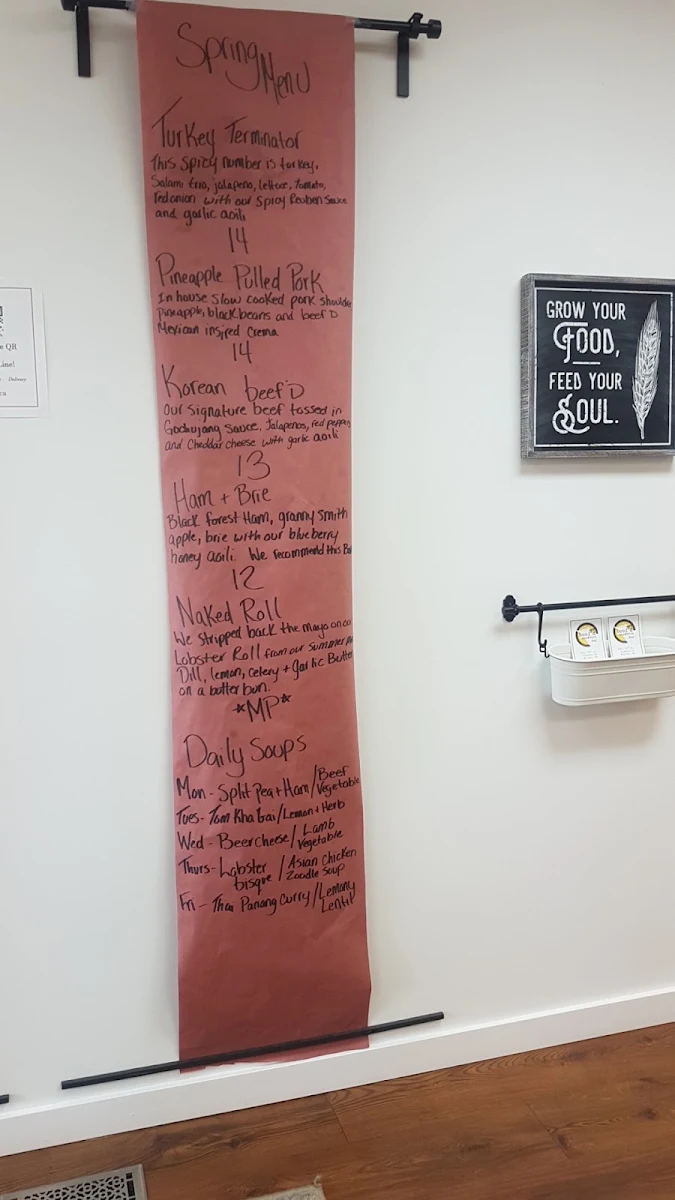 Spring Menu
Turkey Terminator
This spicy number is turkey,
Salami trio, jalapeno, lettuce, tomato,
red onion with our spicy Reuben sauce
and garlic aoili
14
Pineapple Pulled Pork
In house slow cooked pork shoulder
pineapple, black beans and beef'D
Mexican insired Crema
14
Korean beef'D
Our signature beef tossed in
Gochujang sauce. Jalapenos, red pepper
and Cheddar cheese with garlic aoili
13
Ham + Brie
Black forest Ham, granny smith
apple, brie with our blueberry
honey aoili. We recommend this
12
Naked Roll
We stripped back the mayo on
Lobster Roll from our summer
Dill, lemon, celery + garlic Butter
on a butter bun.
*MP*
Daily Soups
Mon - Split Pea + Ham / Beef Vegetable
Tues - Tom Kha Gai / Lemon + Herb
Wed - Beer cheese / Lamb Vegetable
Thurs - Lobster bisque / Asian Chicken Zoodle Soup
Fri - Thai Panang Curry / Lemony Lentil
GROW YOUR
FOOD,
FEED YOUR
SOUL.
QR